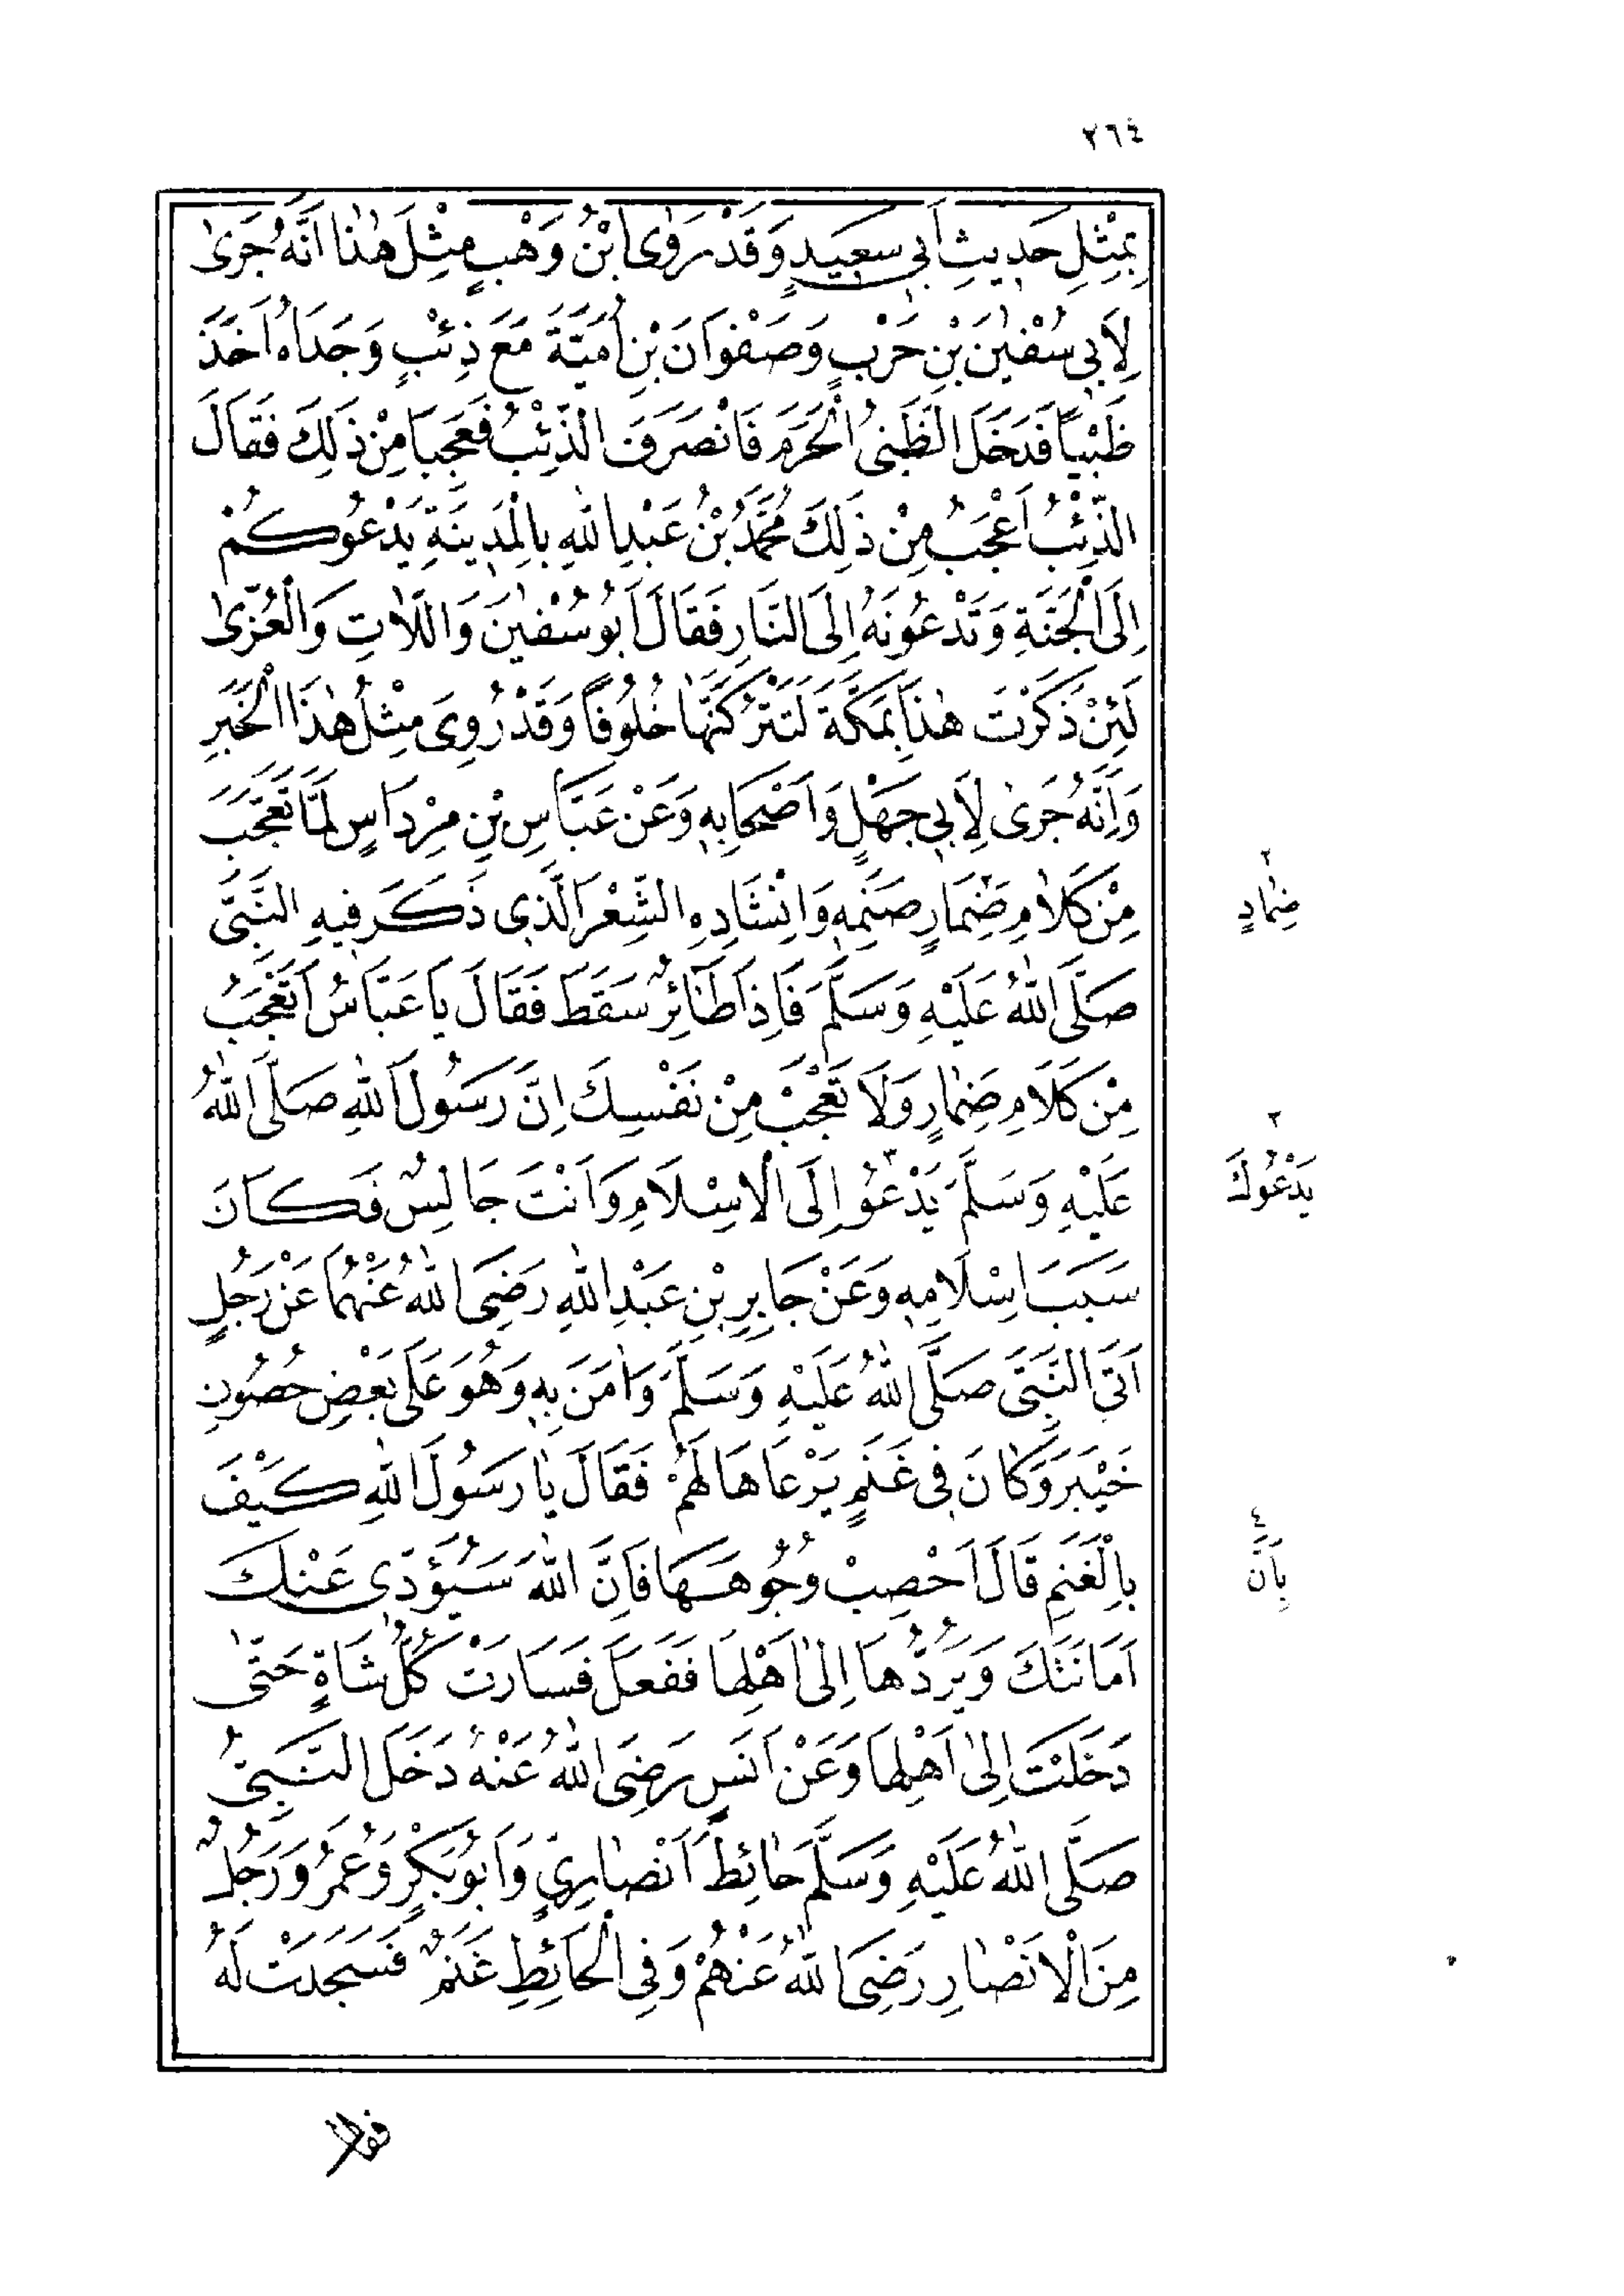 ٢٦٤
بِمِثْلِ حَدِيثِ اَبِي سَعِيدٍ وَقَدْ رَوٰى ابْنُ وَهْبٍ مِثْلَ هٰذَا اَنَّهُ جَرٰى
لِاَبِي سُفْيٰنَ بْنِ حَرْبٍ وَصَفْوَانَ بْنِ اُمَيَّةَ مَعَ ذِئْبٍ وَجَدَاهُ اَخَذَ
ظَبْيًا فَدَخَلَ الظَّبْيُ الْحَرَمَ فَانْصَرَفَ الذِّئْبُ فَعَجِبَا مِنْ ذَلِكَ فَقَالَ
الذِّئْبُ اَعْجَبُ مِنْ ذَلِكَ مُحَمَّدُ بْنُ عَبْدِ اللهِ بِالْمَدِينَةِ يَدْعُوكُمْ
اِلَى الْجَنَّةِ وَتَدْعُونَهُ اِلَى النَّارِ فَقَالَ اَبُو سُفْيٰنَ وَاللَّاتِ وَالْعُزّٰى
لَئِنْ ذَكَرْتَ هٰذَا بِمَكَّةَ لَتَتْرُكَنَّهَا خُلُوفًا وَقَدْ رُوِيَ مِثْلُ هٰذَا الْخَبَرِ
وَاَنَّهُ جَرٰى لِاَبِي جَهْلٍ وَاَصْحَابِهِ وَعَنْ عَبَّاسِ بْنِ مِرْدَاسٍ لَمَّا تَعَجَّبَ
مِنْ كَلَامِ ضِمَارٍ صَنَمِهِ وَاِنْشَادِهِ الشِّعْرَ الَّذِي ذَكَرَ فِيهِ النَّبِيَّ
صَلَّى اللهُ عَلَيْهِ وَسَلَّمَ فَاِذَا طَائِرٌ سَقَطَ فَقَالَ يَا عَبَّاسُ اَتَعْجَبُ
مِنْ كَلَامِ ضِمَارٍ وَلَا تَعْجَبُ مِنْ نَفْسِكَ اِنَّ رَسُولَ اللهِ صَلَّى اللهُ
عَلَيْهِ وَسَلَّمَ يَدْعُو اِلَى الْاِسْلَامِ وَاَنْتَ جَالِسٌ فَكَانَ
سَبَبَ اِسْلَامِهِ وَعَنْ جَابِرِ بْنِ عَبْدِ اللهِ رَضِيَ اللهُ عَنْهُمَا عَنْ رَجُلٍ
اَتَى النَّبِيَّ صَلَّى اللهُ عَلَيْهِ وَسَلَّمَ وَاٰمَنَ بِهِ وَهُوَ عَلَى بَعْضِ حُصُونِ
خَيْبَرَ وَكَانَ فِي غَنَمٍ يَرْعَاهَا لَهُمْ فَقَالَ يَا رَسُولَ اللهِ كَيْفَ
بِالْغَنَمِ قَالَ اَحْصِبْ وُجُوهَهَا فَاِنَّ اللهَ سَيُؤَدِّي عَنْكَ
اَمَانَتَكَ وَيَرُدُّهَا اِلٰى اَهْلِهَا فَفَعَلَ فَسَارَتْ كُلُّ شَاةٍ حَتّٰى
دَخَلَتْ اِلٰى اَهْلِهَا وَعَنْ اَنَسٍ رَضِيَ اللهُ عَنْهُ دَخَلَ النَّبِيُّ
صَلَّى اللهُ عَلَيْهِ وَسَلَّمَ حَائِطَ اَنْصَارِيٍّ وَاَبُو بَكْرٍ وَعُمَرُ وَرَجُلٌ
مِنَ الْاَنْصَارِ رَضِيَ اللهُ عَنْهُمْ وَفِي الْحَائِطِ غَنَمٌ فَسَجَدَتْ لَهُ
٢
ضِمَادٍ
٣
يَدْعُوكَ
٤
بِاَنَّ
فقال